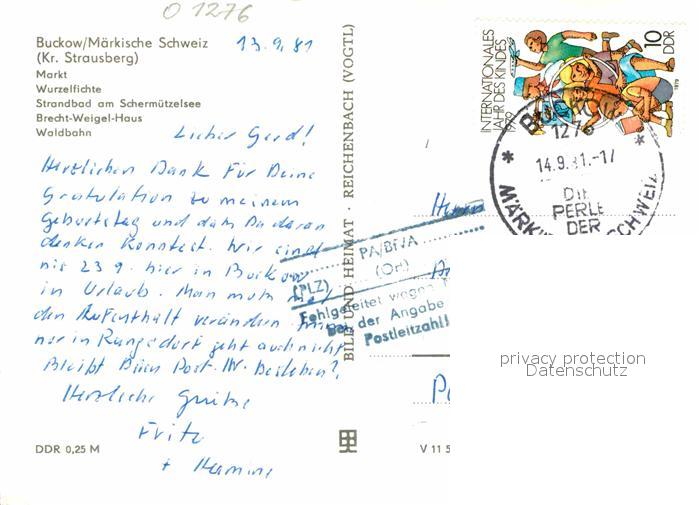 O 1276
Buckow/Märkische Schweiz
(Kr. Strausberg)
Markt
Wurzelfichte
Strandbad am Schermützelsee
Brecht-Weigel-Haus
Waldbahn
13.9.81
Lieber Gerd!
Herzlichen Dank für Deine
Gratulation zu meinem
Geburtstag und daß Du daran
denken konntest. Wir sind
bis 23 9. hier in Buckow
in Urlaub. Man muß mal
den Aufenthalt verändern
nur in Rangsdorf geht auch nicht
Bleibt Büro Post.
Herzliche Grüße
Fritz
+ Hermine
DDR 0,25 M
BILD UND HEIMAT · REICHENBACH (VOGTL)
V 11 5
INTERNATIONALES
JAHR DES KINDES
1979
10
DDR
1979
1276
14.9.81.-17
DIE
PERLE
DER
MÄRK SCHWEIZ
PA/BfA
(PLZ) (Ort)
Fehlgeleitet wegen
Bei der Angabe
Postleitzahl!
privacy protection
Datenschutz